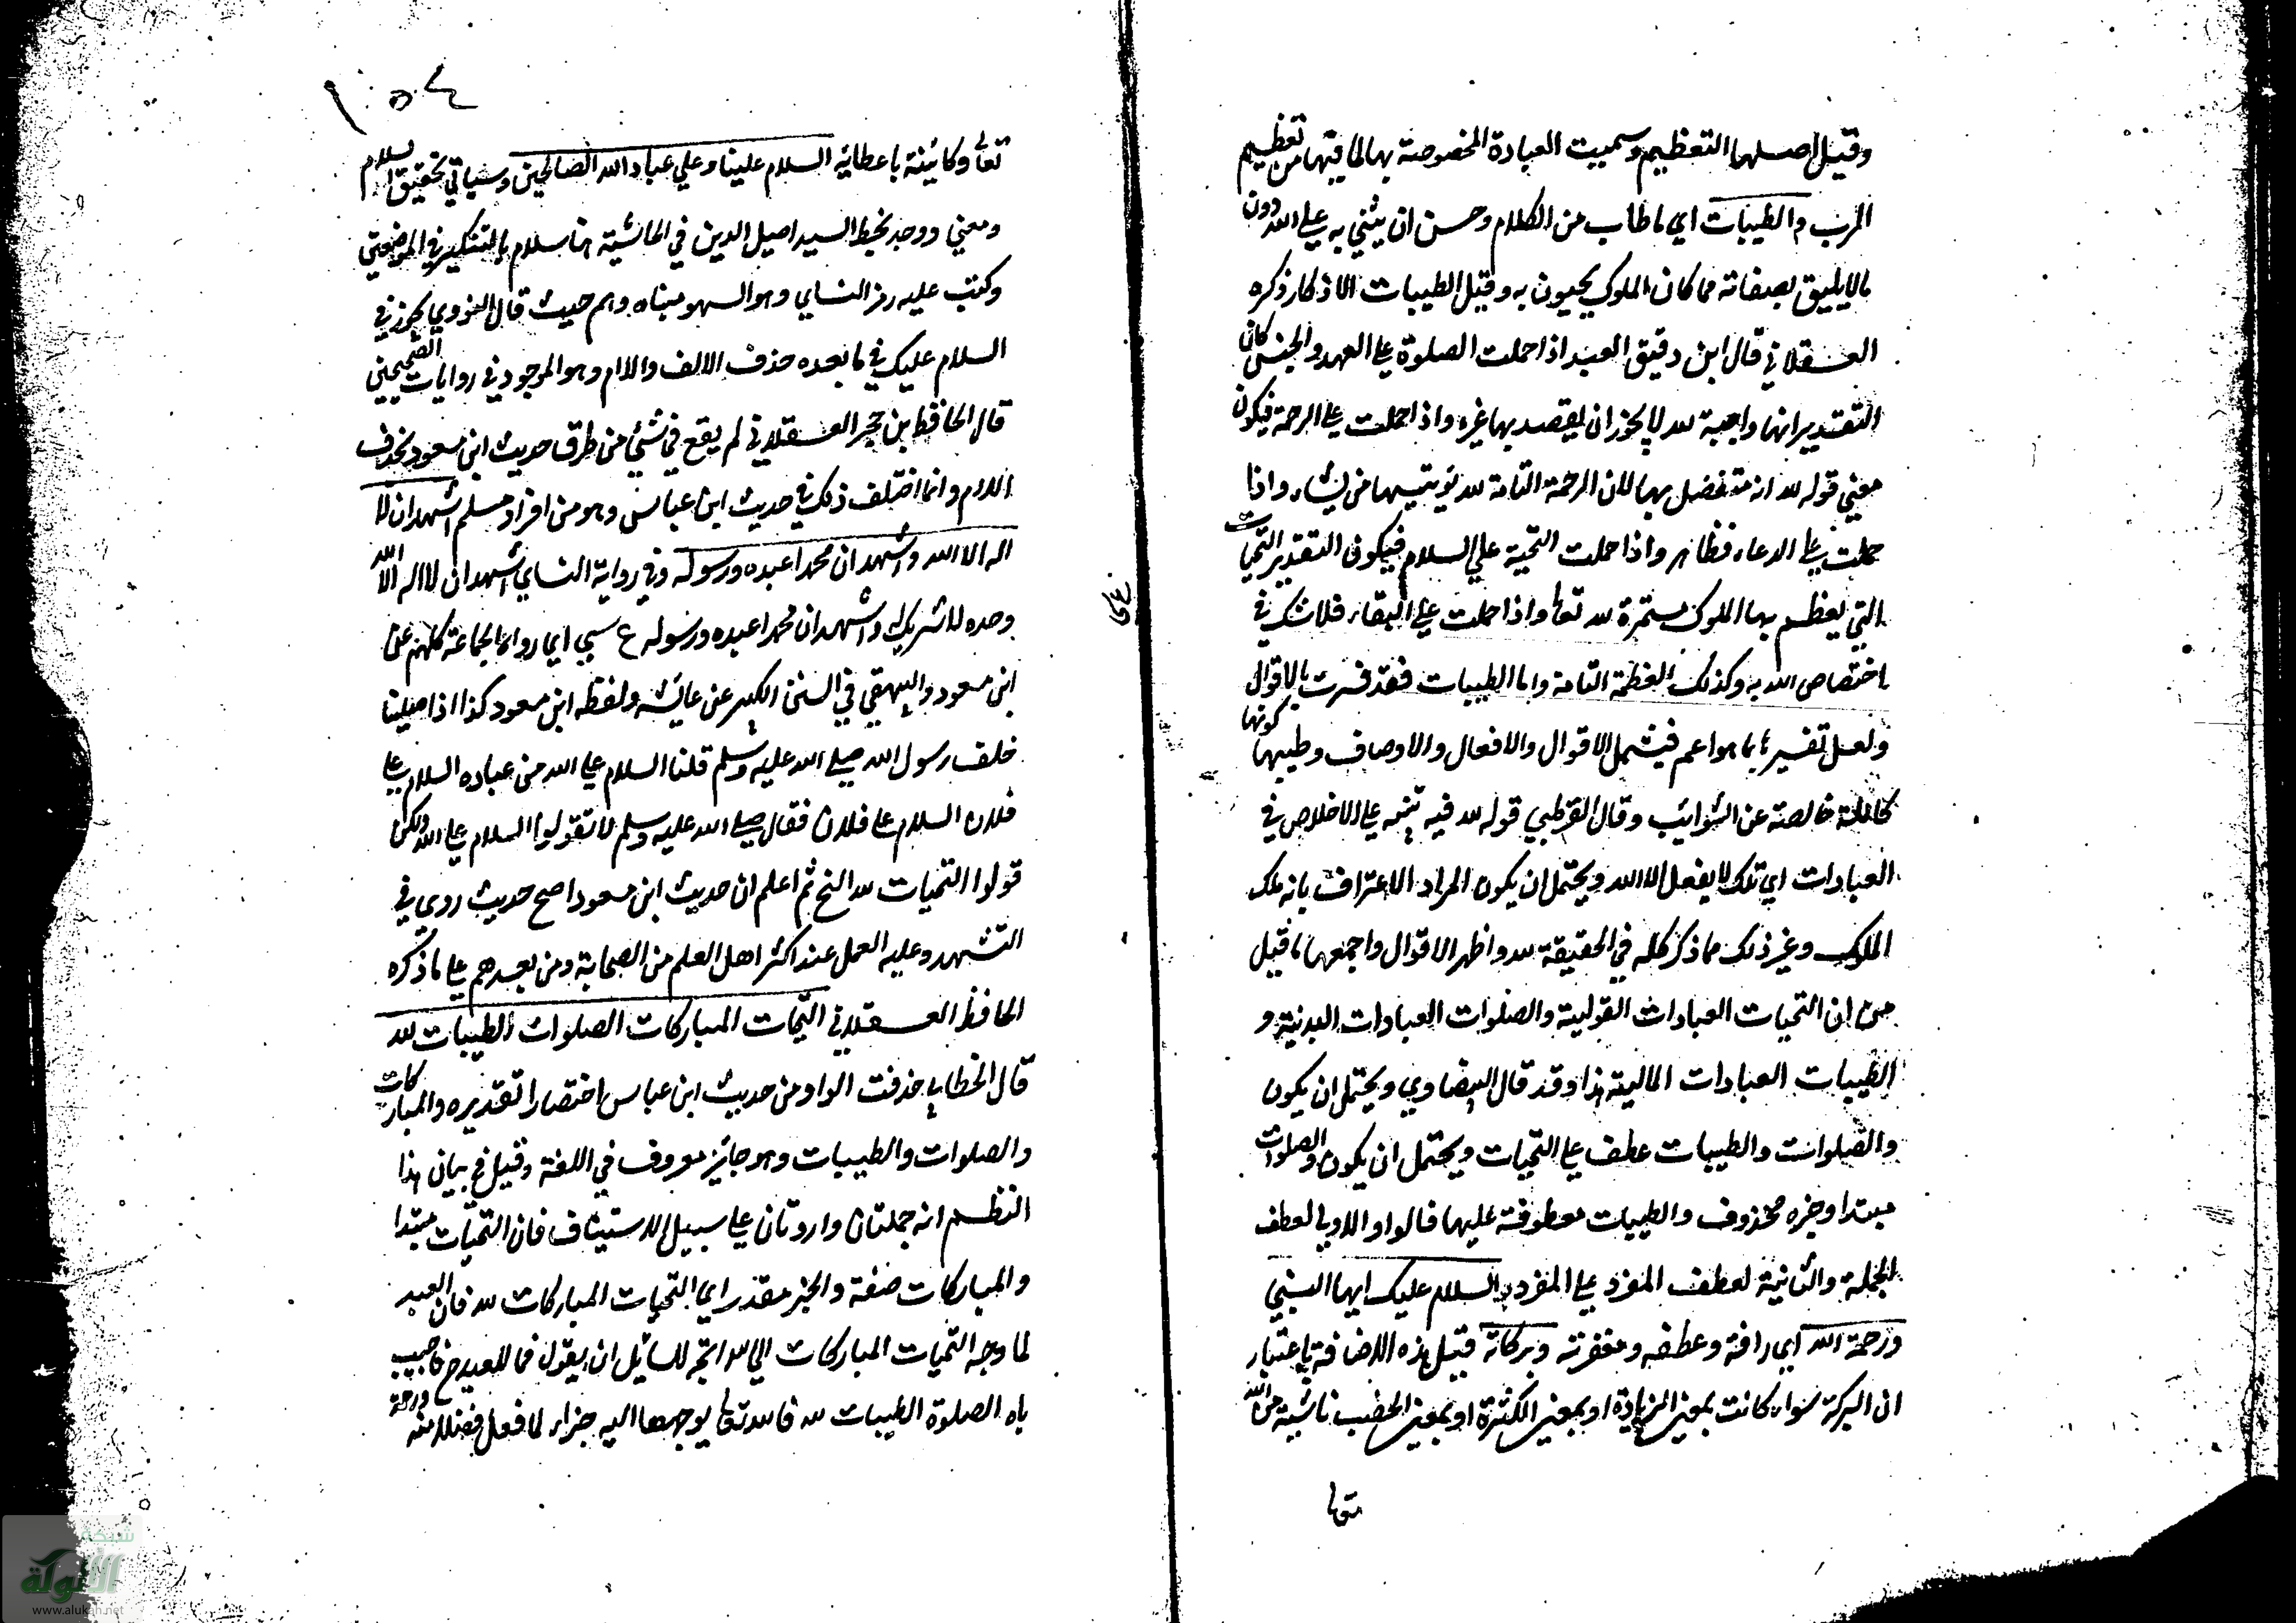 وقيل اصلها التعظيم وسميت العبادة المخصوصة بها لما فيها من تعظيم
الرب والطيبات اي ما طاب من الكلام وحسن ان يثني به علي الله دون
ما لا يليق بصفاته مما كان الملوك يحيون به وقيل الطيبات الاذكار ذكره
العسقلاني قال ابن دقيق العيد اذا حملت الصلوة علي العهد والجنس كان
التقدير انها واجبة لله لا يجوز ان يقصد بها غيره واذا حملت علي الرحمة فيكون
معني قوله لله انه متفضل بها لان الرحمة التامة لله يؤتيها من يشاء واذا
حملت علي الدعاء فظاهر واذا حملت التحية علي السلام فيكون التقدير التحيات
التي يعظم بها الملوك مستمرة لله تعالي واذا حملت علي البقاء فلا شك في
اختصاص الله به وكذلك العظمة التامة واما الطيبات فقد فسرت بالاقوال
ولعل تفسيرها بما هو اعم فيشمل الاقوال والافعال والاوصاف وطيبها كونها
كاملة خالصة عن الشوائب وقال القرطبي قوله لله فيه تنبيه علي الاخلاص في
العبادات اي تلك لا يفعل الا لله ويحتمل ان يكون المراد الاعتراف بانه ملك
الملوك وغير ذلك مما ذكر كله في الحقيقة لله واظهر الاقوال واجمعها ما قيل
من ان التحيات العبادات القولية والصلوات العبادات البدنية و
الطيبات العبادات المالية هذا وقد قال البيضاوي ويحتمل ان يكون
والصلوات والطيبات عطف علي التحيات ويحتمل ان يكون والصلوات
مبتدا وخبره محذوف والطيبات معطوفة عليها فالواو الاولي لعطف
الجملة والثانية لعطف المفرد علي المفرد السلام عليك ايها النبي
ورحمة الله اي رافة وعطفه ومغفرته وبركاته قيل هذه الاضافة باعتبار
ان البركة سواء كانت بمعني الزيادة او بمعني الكثرة او بمعني الخصب ناشية من الله
تعا
تعالي وكائنة باعطائه السلام علينا وعلي عباد الله الصالحين وسياتي تحقيق السلام
ومعني ووجد بخط السيد اصيل الدين في الحاشية هنا سلام بالتنكير في الموضعين
وكتب عليه رمز النساي وهو السهو مبناه وهم حيث قال النووي يجوز في
السلام عليك في ما بعده حذف الالف والام وهو الموجود في روايات الصحيحين
قال الحافظ بن حجر العسقلاني لم يقع في شئ من طرق حديث ابن مسعود بحذف
اللام وانما اختلف ذلك في حديث ابن عباس وهو من افراد مسلم اشهد ان لا
اله الا الله واشهد ان محمدا عبده ورسوله وفي رواية النساي اشهد ان لا اله الا الله
وحده لا شريك له واشهد ان محمدا عبده ورسوله ع سبي اي رواه الجماعة كلهم عن
ابن مسعود والبيهقي في السنن الكبير عن عائشه ولفظه ابن مسعود كذا اذا صلينا
خلف رسول الله صلي الله عليه وسلم قلنا السلام علي الله من عباده السلام علي
فلان السلام علي فلان فقال صلي الله عليه وسلم لا تقولوا السلام علي الله ولكن
قولوا التحيات لله الخ ثم اعلم ان حديث ابن مسعود اصح حديث روي في
التشهد وعليه العمل عند اكثر اهل العلم من الصحابة ومن بعدهم علي ما ذكره
الحافظ العسقلاني التحيات المباركات الصلوات الطيبات لله
قال الخطابي حذفت الواو من حديث ابن عباس اختصارا تقديره والمباركات
والصلوات والطيبات وهو جائز معروف في اللغة وقيل في بيان هذا
النظم انه جملتان واردتان علي سبيل الاستيناف فان التحيات مبتدا
والمباركات صفة والخبر مقدر اي التحيات المباركات لله فان العبد
لما وجه التحيات المباركات الي الله اتجه للسائل ان يقول فما للعبد ح فاجيب
باه الصلوة الطيبات لله فالله تعالي يوجهها اليه جزاء لما فعل فضلا منه ورحمة
شبكة
الألوكة
www.alukah.net